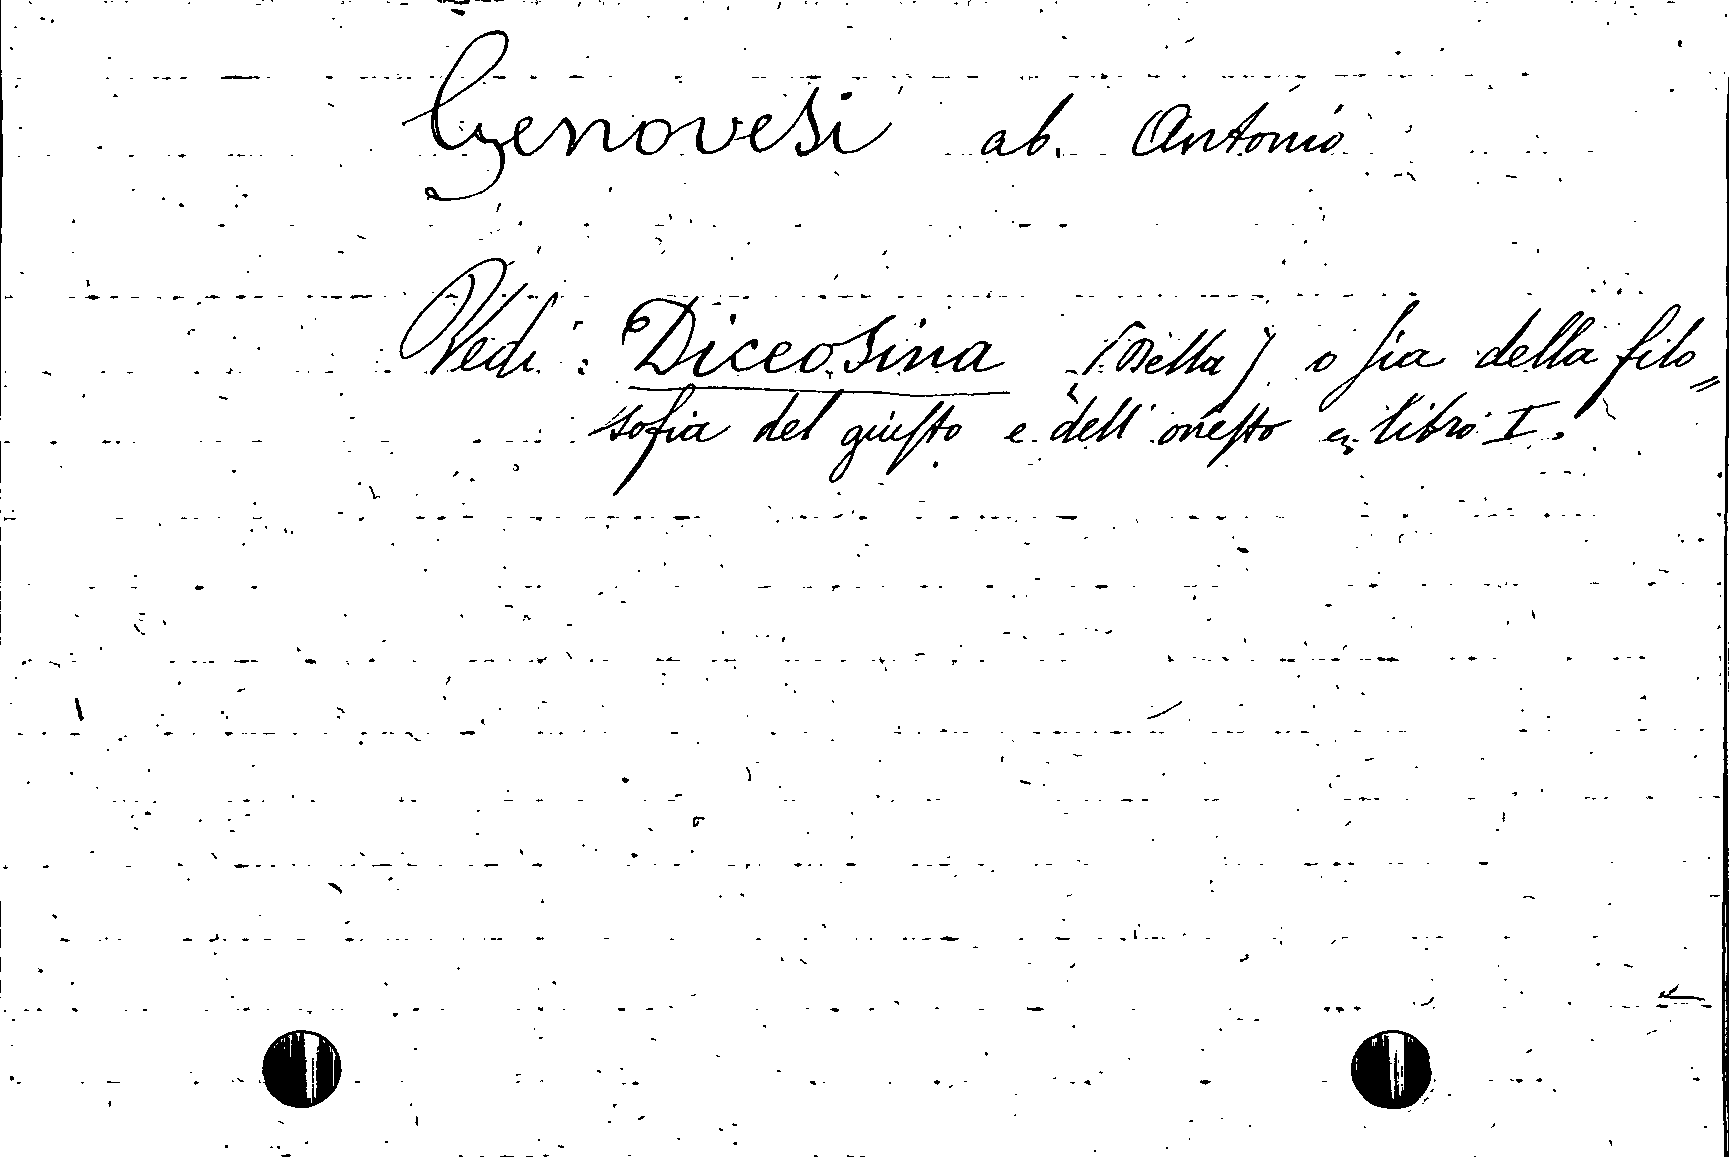 Genovesi ab. Antonio
Vedi: Diceosina (Della) o sia della filo„
sofia del giusto e dell' onesto libro I.